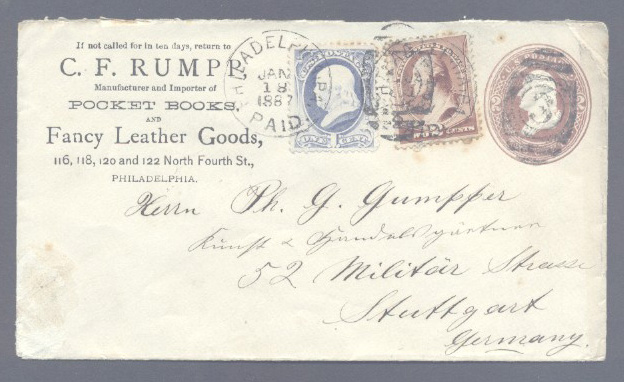 If not called for in ten days, return to
C. F. RUMPP,
Manufacturer and Importer of
POCKET BOOKS,
AND
Fancy Leather Goods,
116, 118, 120 and 122 North Fourth St.,
PHILADELPHIA.
PHILADELPHIA PA
JAN
18
1887
PAID
2 CENTS
Herrn Ph. G. Gumpper
Kunst & Handelsgärtner
52 Militär Strasse
Stuttgart
Germany.